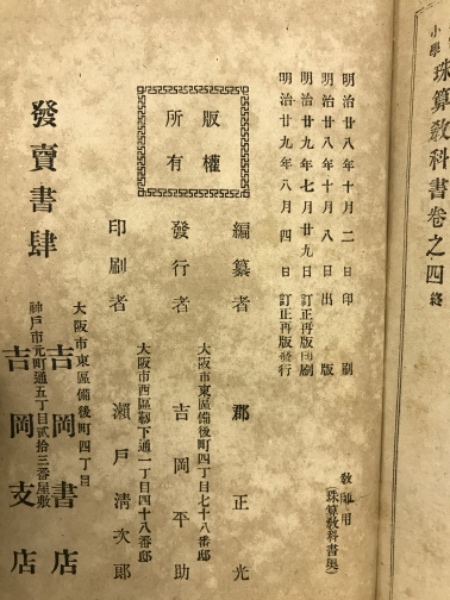 小學珠算敎科書卷之四終
敎師用
(珠算敎科書奥)
明治廿八年十月二日印刷
明治廿八年十月八日出版
明治廿九年七月廿九日訂正再版印刷
明治廿九年八月四日訂正再版發行
版權
所有
編纂者 郡正光
大阪市東區備後町四丁目七十八番邸
發行者 吉岡平助
大阪市西區靱下通一丁目四十八番邸
印刷者 瀬戸淸次郎
發賣書肆
大阪市東區備後町四丁目
吉岡書店
神戸市元町通五丁目貳拾三番屋敷
吉岡支店